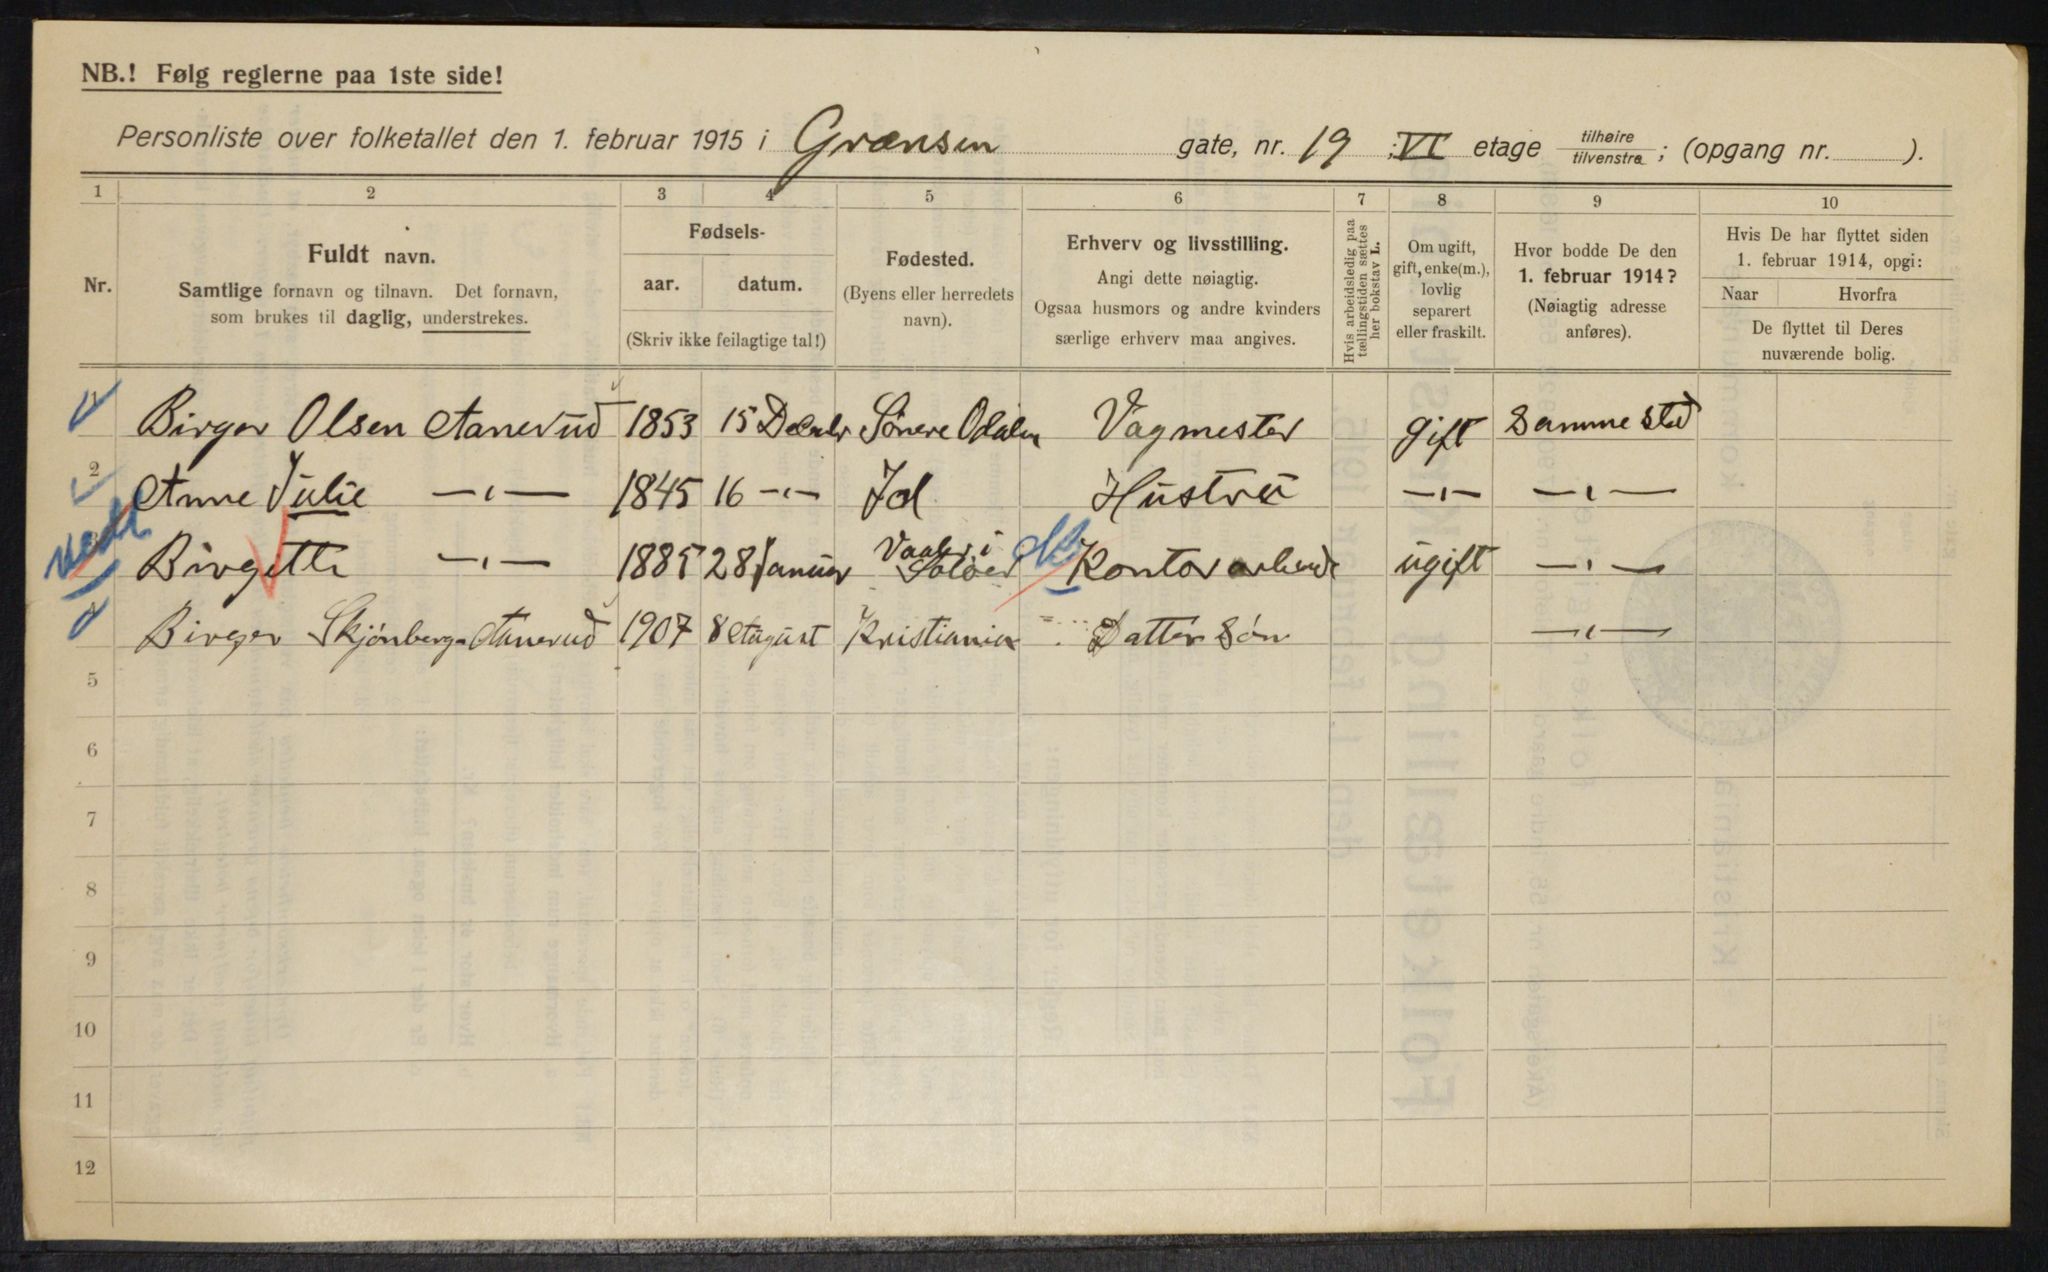 NB.! Følg reglerne paa 1ste side!
Personliste over folketallet den 1. februar 1915 i Grænsen gate, nr. 19 ; VI etage tilhøire/tilvenstre; (opgang nr. ).
1 2 3 4 5 6 7 8 9 10
Nr.
Fuldt navn.
Samtlige fornavn og tilnavn. Det fornavn,
som brukes til daglig, understrekes.
Fødsels-
aar. datum.
(Skriv ikke feilagtige tal!)
Fødested.
(Byens eller herredets
navn).
Erhverv og livsstilling.
Angi dette nøiagtig.
Ogsaa husmors og andre kvinders
særlige erhverv maa angives.
Hvis arbeidsledig paa
tællingstiden sættes
her bokstav L.
Om ugift,
gift, enke(m.),
lovlig
separert
eller fraskilt.
Hvor bodde De den
1. februar 1914?
(Nøiagtig adresse
anføres).
Hvis De har flyttet siden
1. februar 1914, opgi:
Naar Hvorfra
De flyttet til Deres
nuværende bolig.
Birger Olsen Aanerud 1853 15 Decmbr Söndre Odalen Vagmester gift Samme sted
2 Anne Julie —"— 1845 16 —"— Id Hustru —"— —"—
Birgitte —"— 1885 28 Januar Vaaler i Soløer Kontorarbeide ugift —"—
Birger Skjönberg-Aanerud 1907 8 August Kristiania Datter Sön —"—
5
6
7
8
9
10
11
12